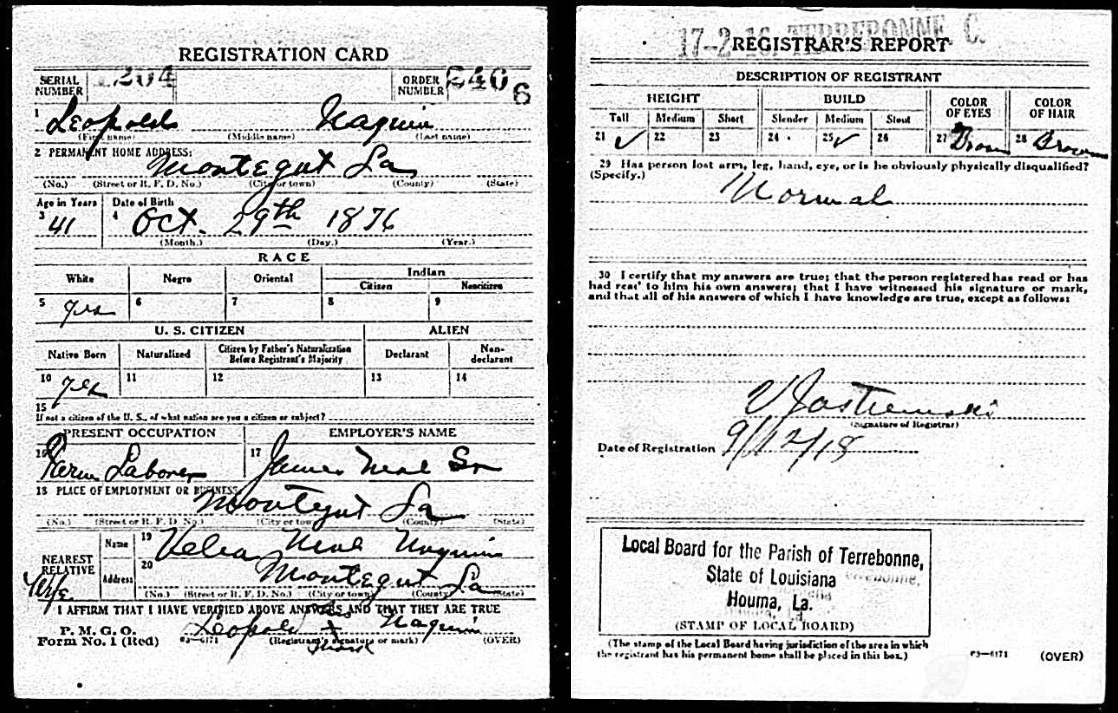 REGISTRATION CARD
SERIAL NUMBER 1204 ORDER NUMBER 2406
1 Leopold Naquin
(First name) (Middle name) (Last name)
2 PERMANENT HOME ADDRESS:
Montegut La
(No.) (Street or R. F. D. No.) (City or town) (County) (State)
Age in Years Date of Birth
3 41 4 Oct. 29th 1876
(Month.) (Day.) (Year.)
RACE
White Negro Oriental Indian
Citizen Noncitizen
5 yes 6 7 8 9
U. S. CITIZEN ALIEN
Native Born Naturalized Citizen by Father's Naturalization Before Registrant's Majority Declarant Non-declarant
10 yes 11 12 13 14
15
If not a citizen of the U. S., of what nation are you a citizen or subject?
PRESENT OCCUPATION EMPLOYER'S NAME
16 Farm Laborer 17 James Neal Sr
18 PLACE OF EMPLOYMENT OR BUSINESS:
Montegut La
(No.) (Street or R. F. D. No.) (City or town) (County) (State)
NEAREST RELATIVE Name 19 Neal Naquin
Wife Address 20 Montegut La
(No.) (Street or R. F. D. No.) (City or town) (County) (State)
I AFFIRM THAT I HAVE VERIFIED ABOVE ANSWERS AND THAT THEY ARE TRUE
P. M. G. O.
Form No. 1 (Red) 03—6171 Leopold his x mark Naquin
(Registrant's signature or mark) (OVER)
17-2-16 TERREBONNE C.
REGISTRAR'S REPORT
DESCRIPTION OF REGISTRANT
HEIGHT BUILD COLOR OF EYES COLOR OF HAIR
Tall Medium Short Slender Medium Stout
21 ✓ 22 23 24 25 ✓ 26 27 Brown 28 Brown
29 Has person lost arm, leg, hand, eye, or is he obviously physically disqualified?
(Specify.) Normal
30 I certify that my answers are true; that the person registered has read or has
had read to him his own answers; that I have witnessed his signature or mark,
and that all of his answers of which I have knowledge are true, except as follows:
V Jastremski
(Signature of Registrar)
Date of Registration 9/12/18
Local Board for the Parish of Terrebonne,
State of Louisiana
Houma, La.
(STAMP OF LOCAL BOARD)
(The stamp of the Local Board having jurisdiction of the area in which
the registrant has his permanent home shall be placed in this box.)
03—6171 (OVER)